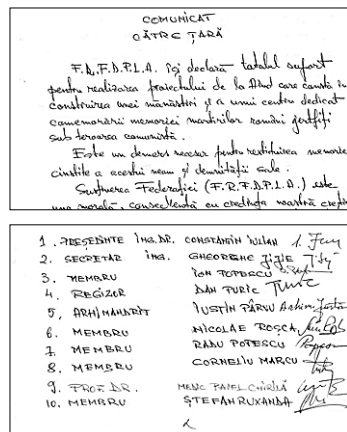 COMUNICAT
CĂTRE ȚARĂ
F.R.F.D.P.L.A. își declară totalul suport
pentru realizarea proiectului de la Aiud care constă în
construirea unei mănăstiri și a unui centru dedicat
comemorării memoriei martirilor români jertfiți
sub teroarea comunistă.
Este un demers necesar pentru restituirea memoriei
cinstite a acestui neam și demnității sale.
Susținerea Federației (F.R.F.D.P.L.A.) este
una morală, consecventă cu credința noastră
1. PREȘEDINTE ING. DR. CONSTANTIN IULIAN
2. SECRETAR ING. GHEORGHE JIJIE
3. MEMBRU ION POPESCU
4. REGIZOR DAN PURIC
5. ARHIMANDRIT IUSTIN PÂRVU
6. MEMBRU NICOLAE ROȘCA
7. MEMBRU RADU POPESCU
8. MEMBRU CORNELIU MARCU
9. PROF. DR. PAVEL CHIRILĂ
10. MEMBRU ȘTEFAN RUXANDA